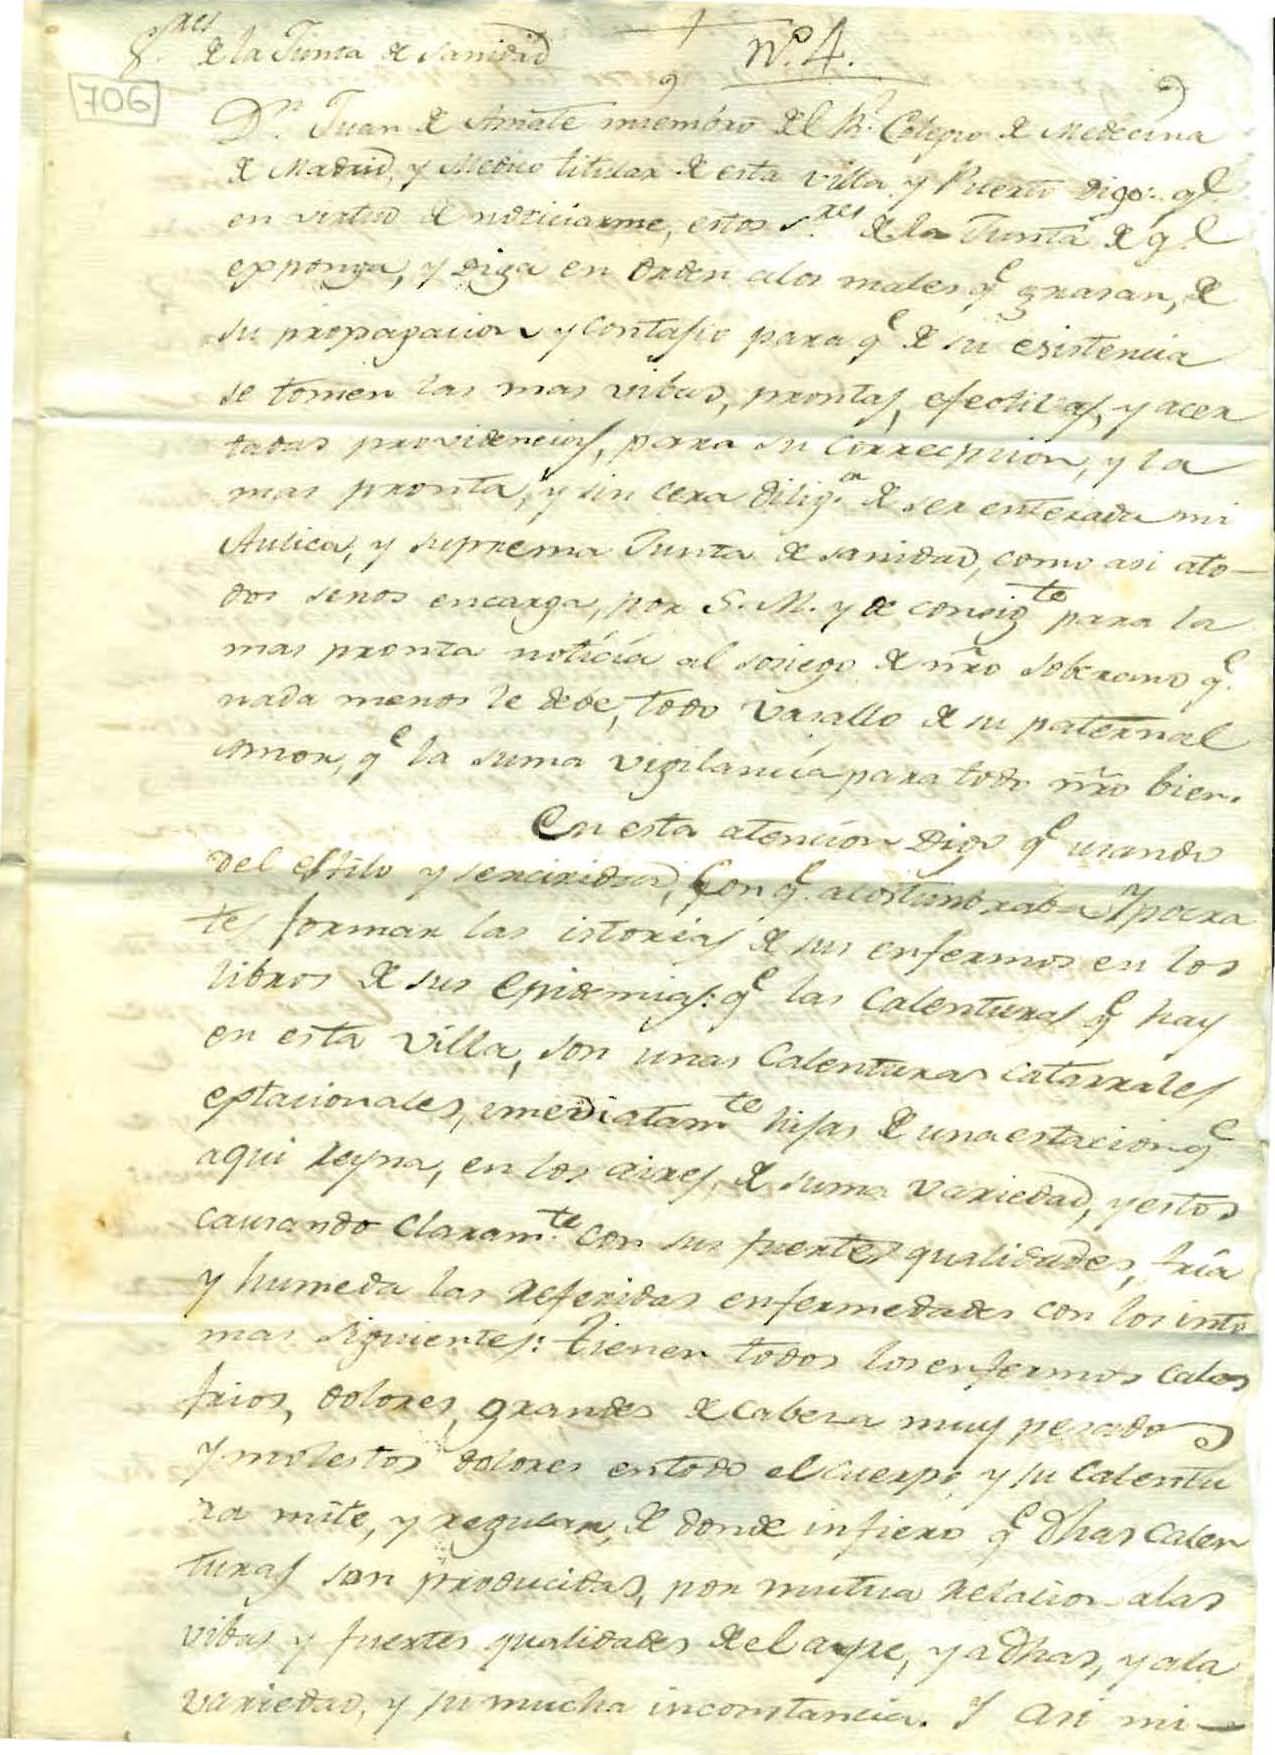 S.res de la Junta de sanidad + N.o 4.
706
D.n Juan de Amate miembro del R.l Colegio de Medecina
de Madrid, y Medico titular de esta villa y Puerto Digo: q.e
en virtud de noticiarme, estos S.res de la Junta de q.e
exponga, y diga en orden alos males q.e grasan, de
su propagacion y contagio para q.e de su existencia
se tomen las mas vibas, prontas, efectivas, y acer
tadas providencias, para su correcpcion, y la
mas pronta, y sin cera dilig.a de ser enterada mi
Aulica, y suprema Junta de sanidad, como asi ato-
dos senos encarga, por S.M. y de consig.te para la
mas pronta notícia al sosiego de nro soberano q.e
nada menos le debe, todo vasallo de su paternal
amor, q.e la suma vigilancia para todo nro bien.
En esta atencion Digo q.e usando
del estilo y senciridad, con q.e acostumbraba Ypocra
tes formar las istorias de sus enfermos en los
libros de sus Epidemias: q.e las Calenturas q.e hay
en esta villa, son unas Calenturas catarrales
estacionales, imediatam.te hijas de una estacion q.e
aqui reyna, en los aires, de suma variedad, y estos
causando claram.te con sus fuertes qualidades, fria
y humeda las referidas enfermedades con los into
mas siguientes: tienen todos los enfermos calos
frios, dolores, grandes de cabeza muy pesados
y molestos dolores entodo el cuerpo, y su calentu
ra mite, y regular, de donde infiero q.e dhas Calen
turas son producidas, por mutua relacion alas
vibas y fuertes qualidades del ayre, y a dhas, y ala
variedad, y su mucha inconstancia. Y asi mi-